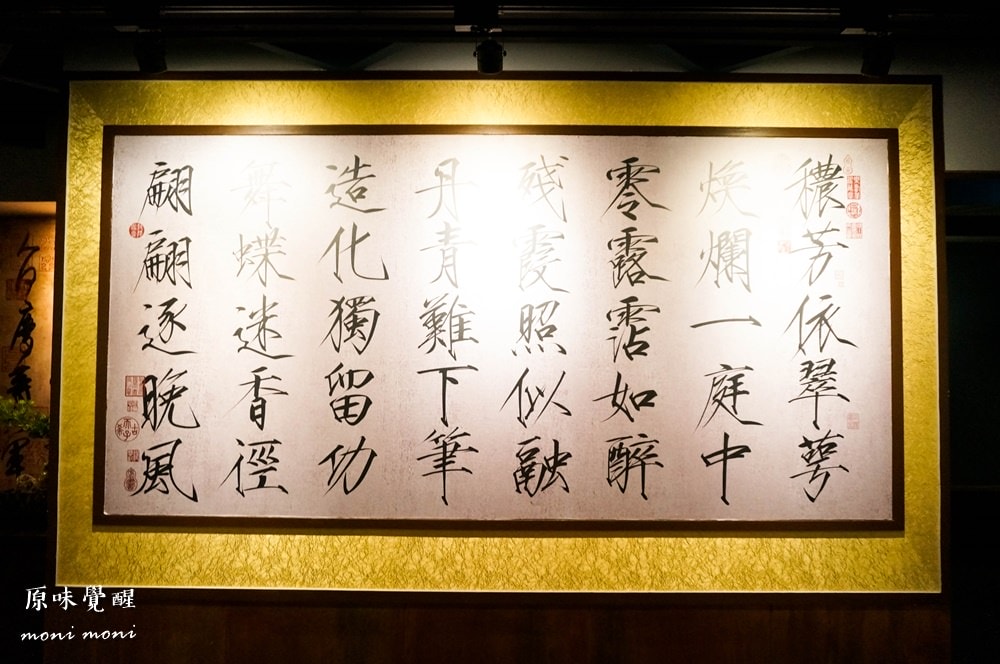 穠芳依翠萼
煥爛一庭中
零露霑如醉
殘霞照似融
丹青難下筆
造化獨留功
舞蝶迷香徑
翩翩逐晚風
原味覺醒
moni moni